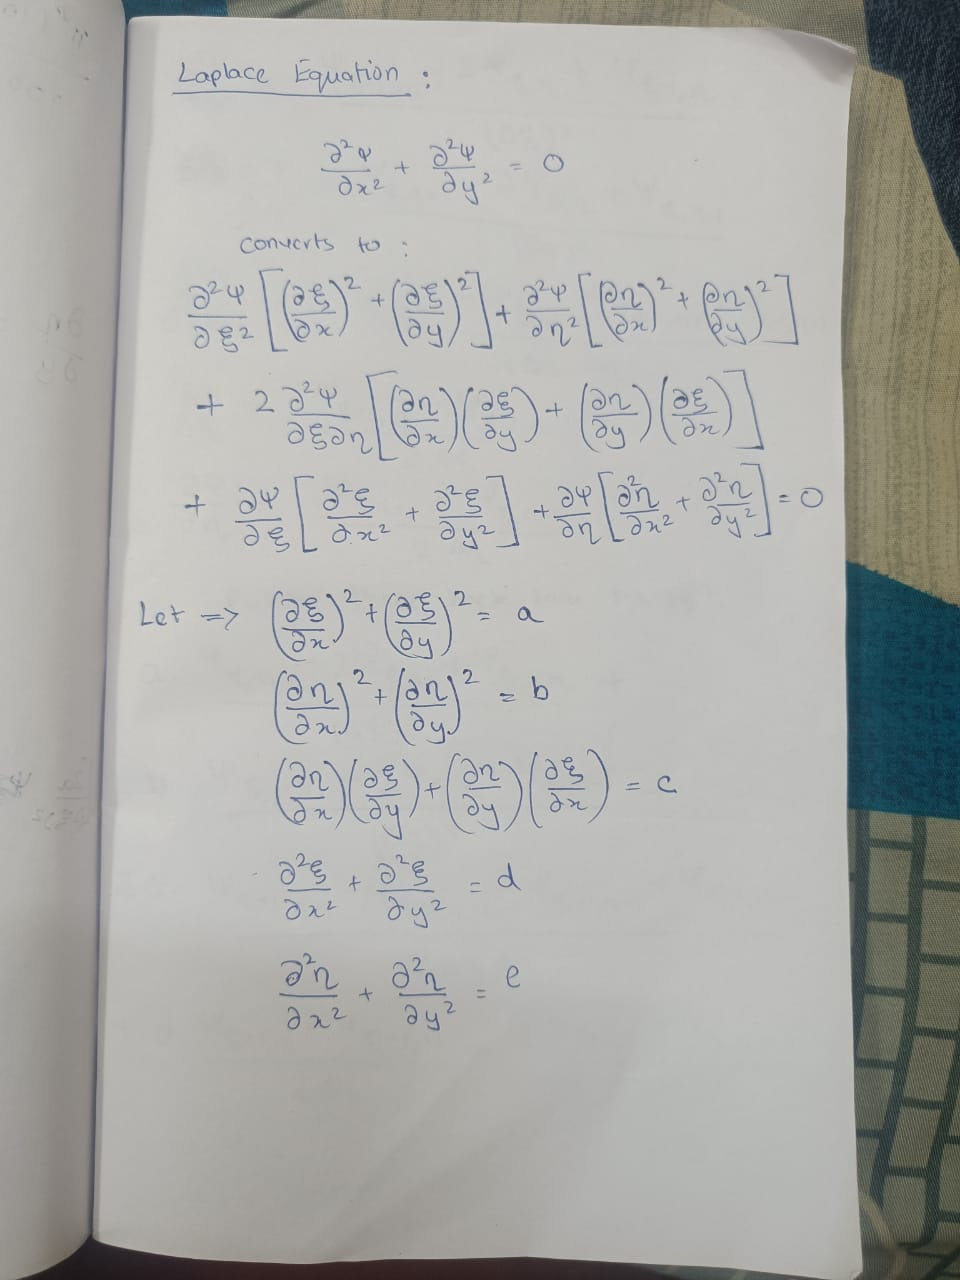 Laplace Equation :
∂²ψ/∂x² + ∂²ψ/∂y² = 0
converts to :
∂²ψ/∂ξ² [(∂ξ/∂x)² + (∂ξ/∂y)²] + ∂²ψ/∂η² [(∂η/∂x)² + (∂η/∂y)²]
+ 2 ∂²ψ/∂ξ∂η [(∂η/∂x)(∂ξ/∂y) + (∂η/∂y)(∂ξ/∂x)]
+ ∂ψ/∂ξ [∂²ξ/∂x² + ∂²ξ/∂y²] + ∂ψ/∂η [∂²η/∂x² + ∂²η/∂y²] = 0
Let => (∂ξ/∂x)² + (∂ξ/∂y)² = a
(∂η/∂x)² + (∂η/∂y)² = b
(∂η/∂x)(∂ξ/∂y) + (∂η/∂y)(∂ξ/∂x) = c
∂²ξ/∂x² + ∂²ξ/∂y² = d
∂²η/∂x² + ∂²η/∂y² = e